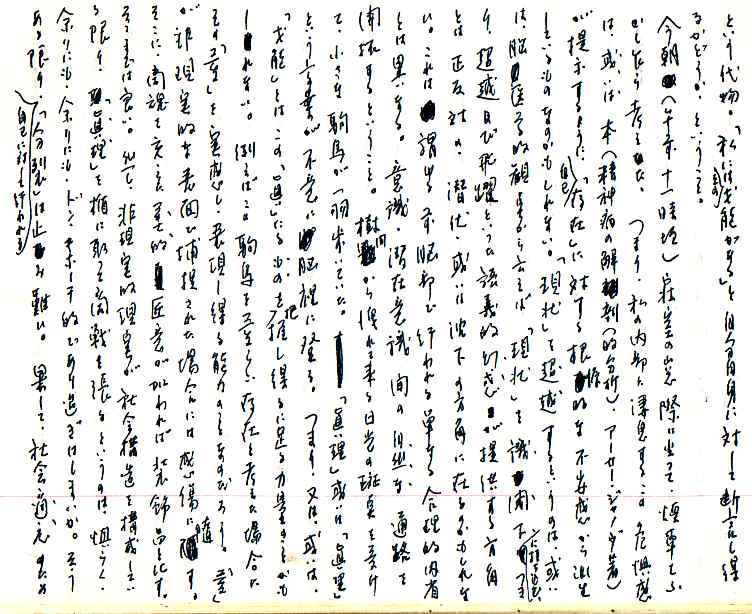 という代物。「私にはその才能がある」と自分自身に対して断言し得
るかどうか、ということ。
今朝（午前十一時頃）寝室の窓際に坐って、煙草をふ
かし乍ら考えた。つまり、私の内部に深思するこの危惧感
は、或いは本（精神病の解剖的分析）、アーサー・ジャノヴ著）
が提示するように、「自己存在」に対する根源的な不安感から派生
しているものなのかもしれない。「現状」を超越するというのは、或い
は、脳医学的観点から云えば「現状」を識閾下に
り、超越及び飛躍といった語義的幻惑が提供する方角
とは正反対の、潜伏、或いは沈下の方角に在るのかもしれな
い。これは謂ゆる前脳部で行われる単なる合理的内省
とは異なる。意識・潜在意識間の自然な通路を
開拓するということ。樹間から洩れて来る日光の斑点を受け
て、小さな駒鳥が一羽歩いていた。「真理」或いは「真理」
という言葉が不意に脳裡に登る。つまり、又は、或いは、
「才能」とはこの「真」なるものを把握し得るに足る力量のことかも
しれない。例えばこの駒鳥を「聖」なる存在と考えた場合に
その「聖」を実感し、表現し得る能力のことなのだろう。「聖」
が非現実的な表面で捕捉された場合には感傷に堕す。
そこに、南魂を交えた美的匠意が加われば装飾品と化す。
そこまでは良い。処で、非現実的現実が社会構造を構成してい
る限り、「真理」を楯に取って商戦を張るというのは、恐らく、
余りにも、余りにも、ドン・キホーテ的であり過ぎはしまいか。そう
ある限り、「自己に対して行われる分裂」は止み難い。果して、社会通念のため